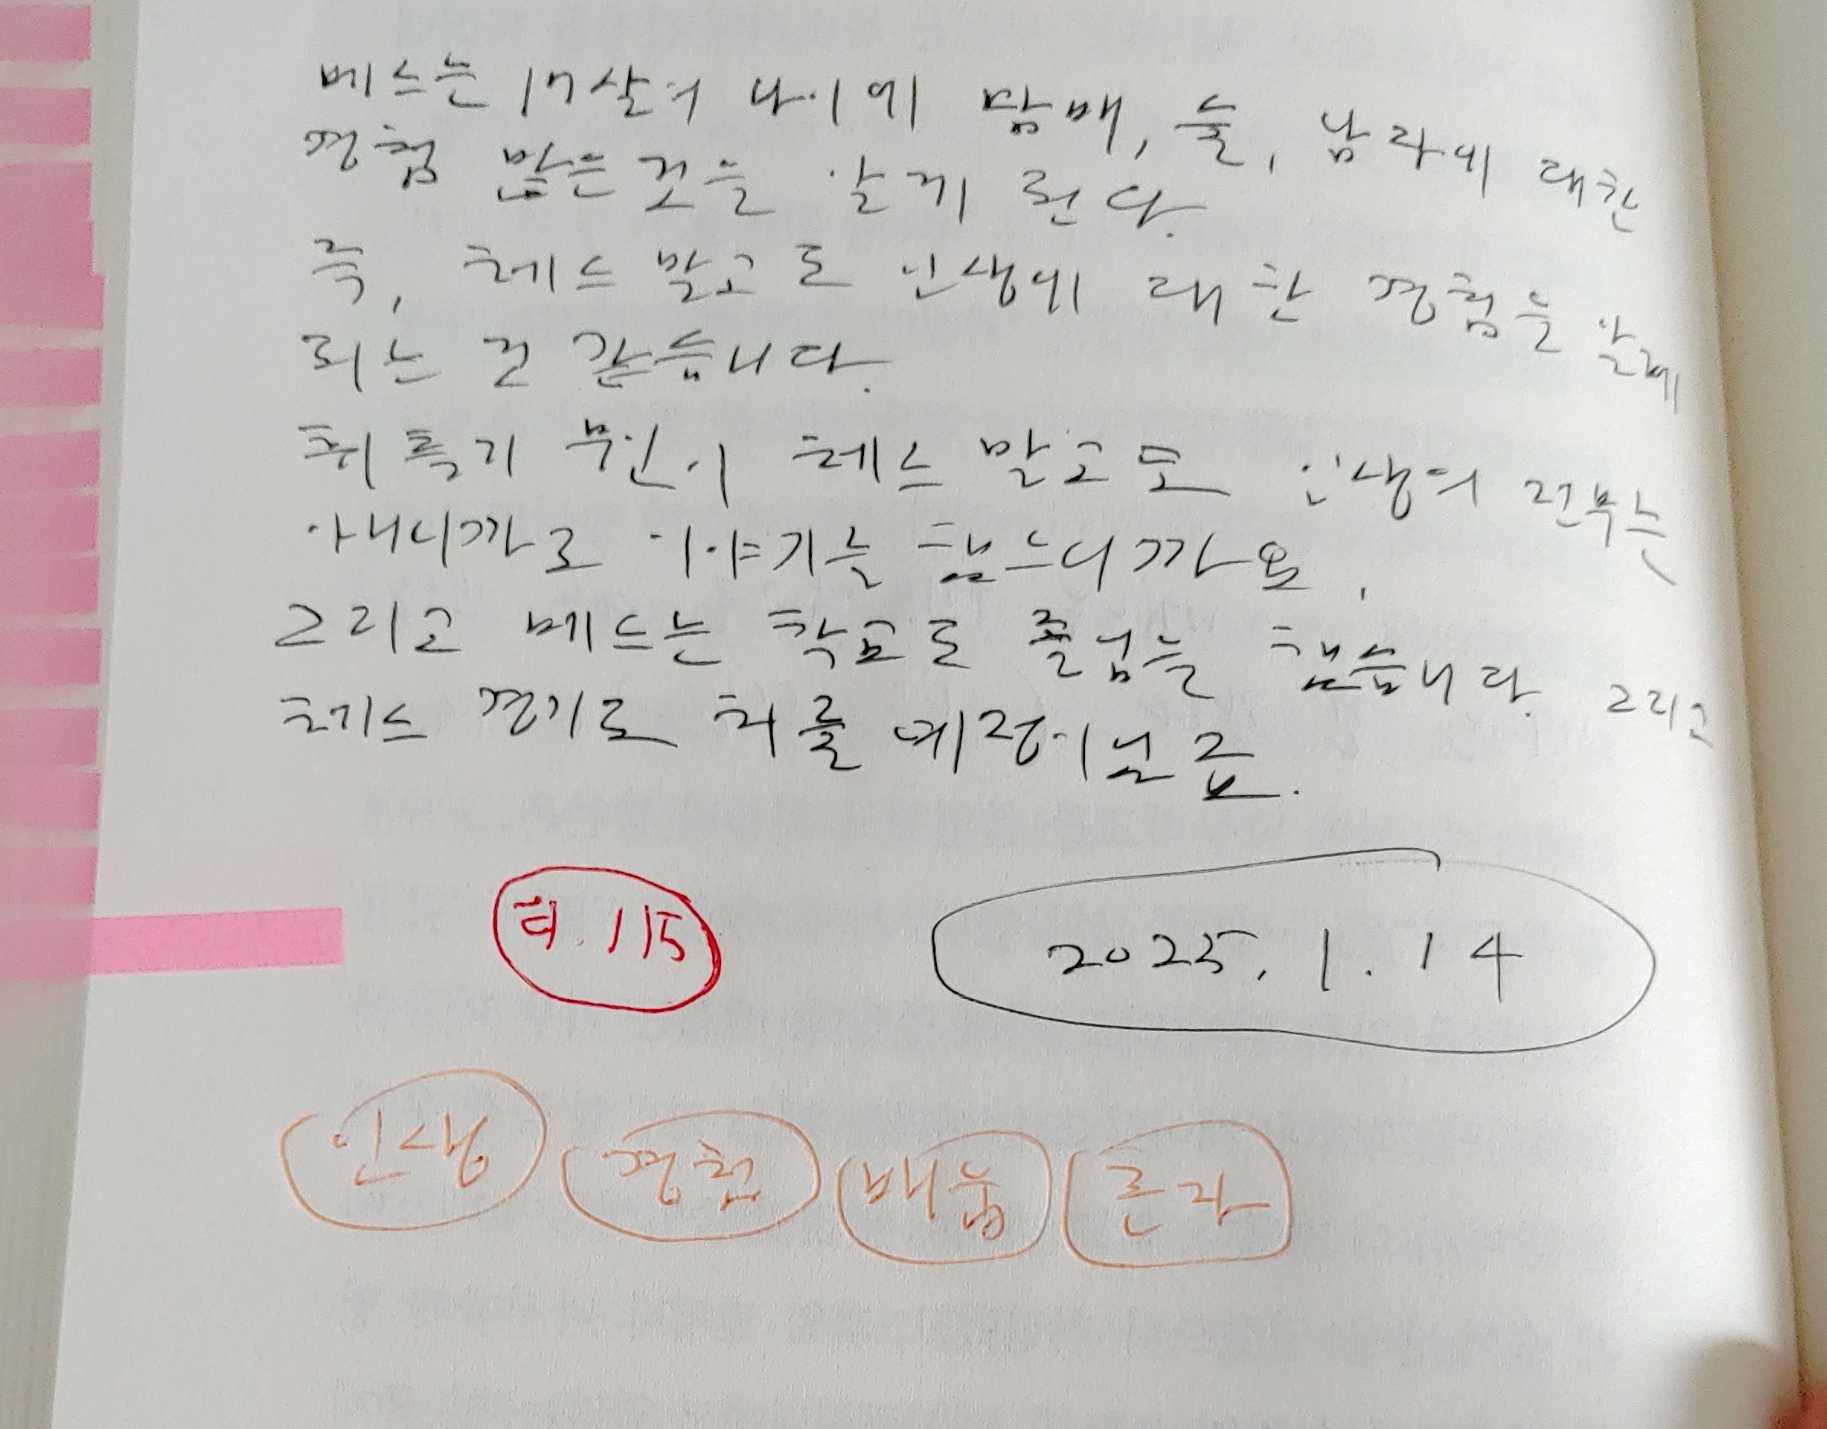 베스는 17살의 나이에 담배, 술, 남자에 대한
경험 많은것을 알게 된다.
즉, 체스 말고도 인생에 대한 경험을 알게
되는 것 같습니다.
휘틀리 부인이 체스 말고도 인생의 전부는
아니까로 이야기를 했느니까요.
그리고 베스는 학교로 졸업을 했습니다. 그리고
체스 경기로 치를 예정이닌죠.
P. 115
2025. 1. 14
인생 경험 배움 혼자